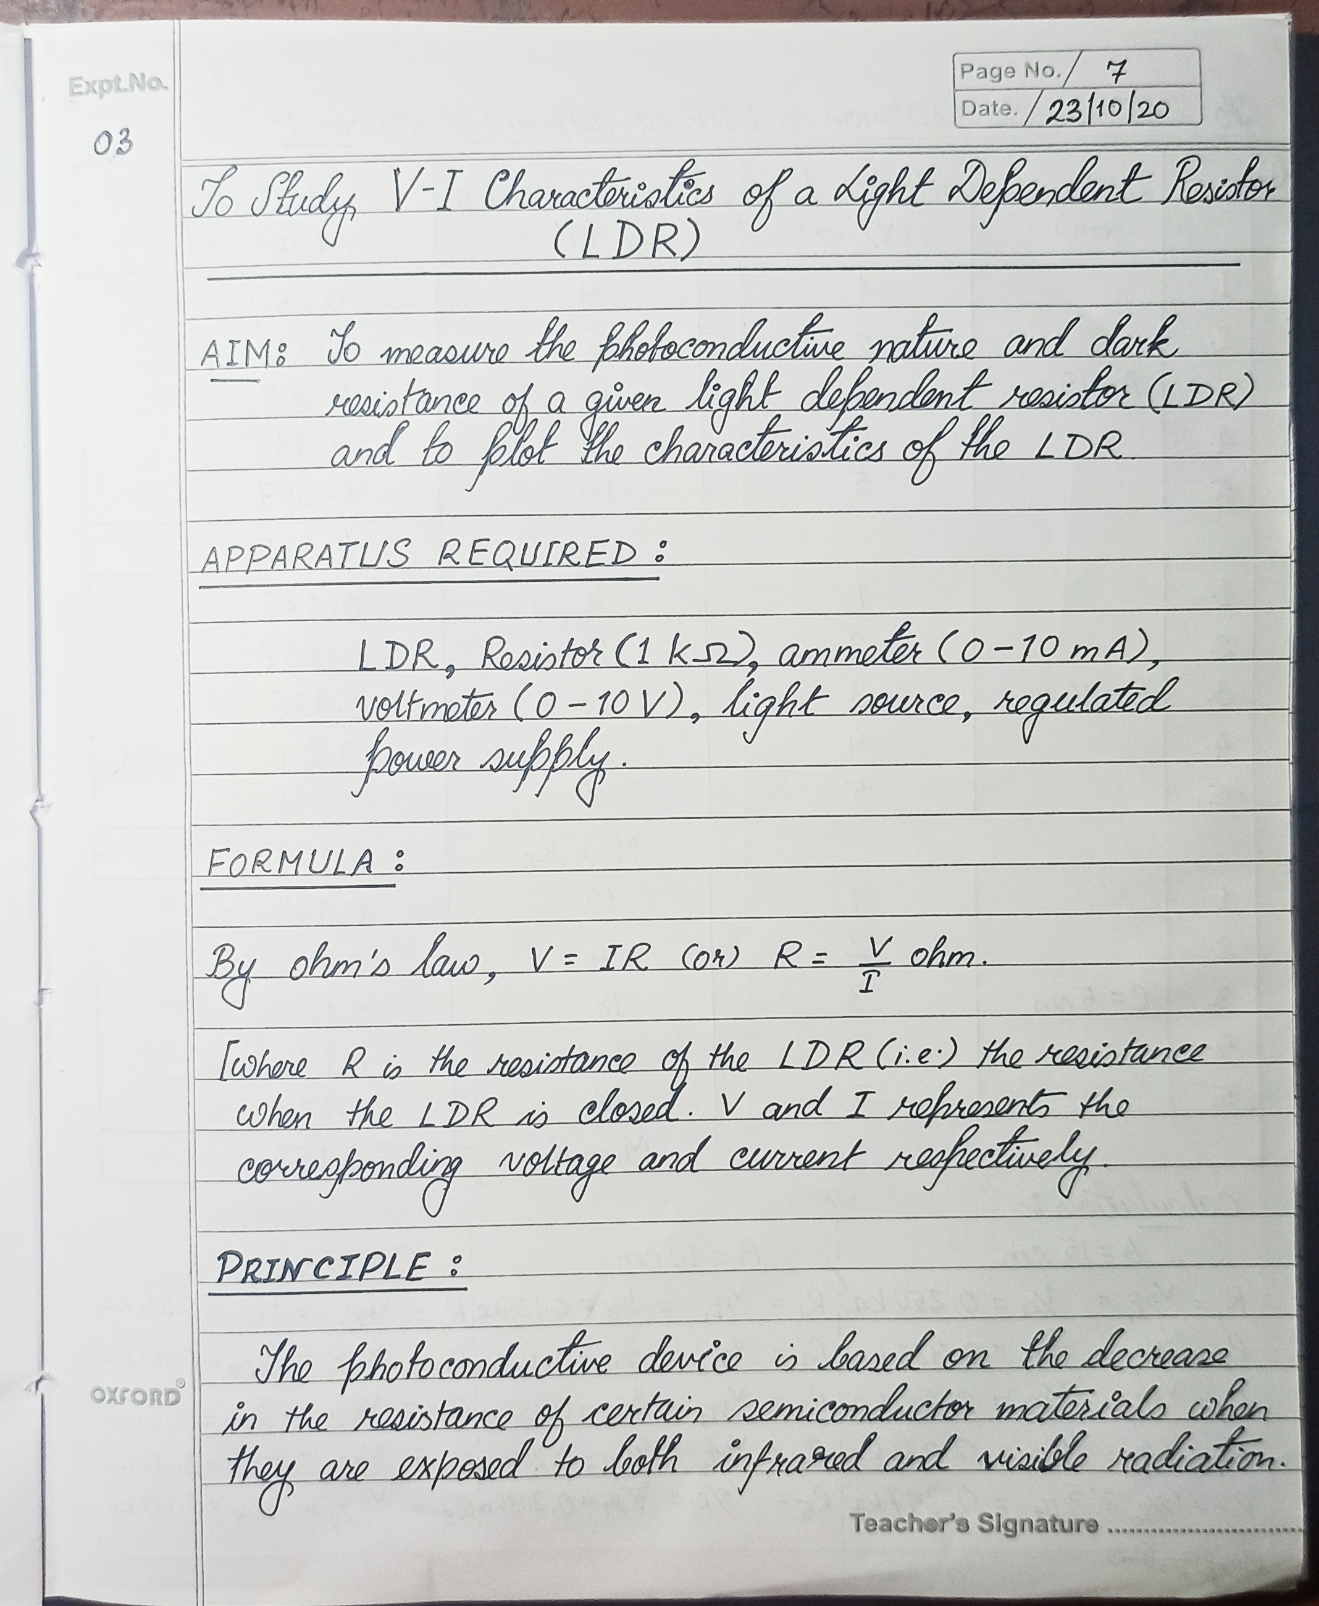 Expt.No.
03
Page No. / 7
Date. / 23/10/20
To Study V-I Characteristics of a Light Dependent Resistor
(LDR)
AIM: To measure the photoconductive nature and dark
resistance of a given light dependent resistor (LDR)
and to plot the characteristics of the LDR.
APPARATUS REQUIRED :
LDR, Resistor (1 kΩ), ammeter (0-10 mA),
voltmeter (0-10 V), light source, regulated
power supply.
FORMULA :
By ohm's law, V = IR (or) R = V/I ohm.
[where R is the resistance of the LDR (i.e.) the resistance
when the LDR is closed. V and I represents the
corresponding voltage and current respectively.
PRINCIPLE :
The photoconductive device is based on the decrease
in the resistance of certain semiconductor materials when
they are exposed to both infrared and visible radiation.
OXFORD®
Teacher's Signature ..............................